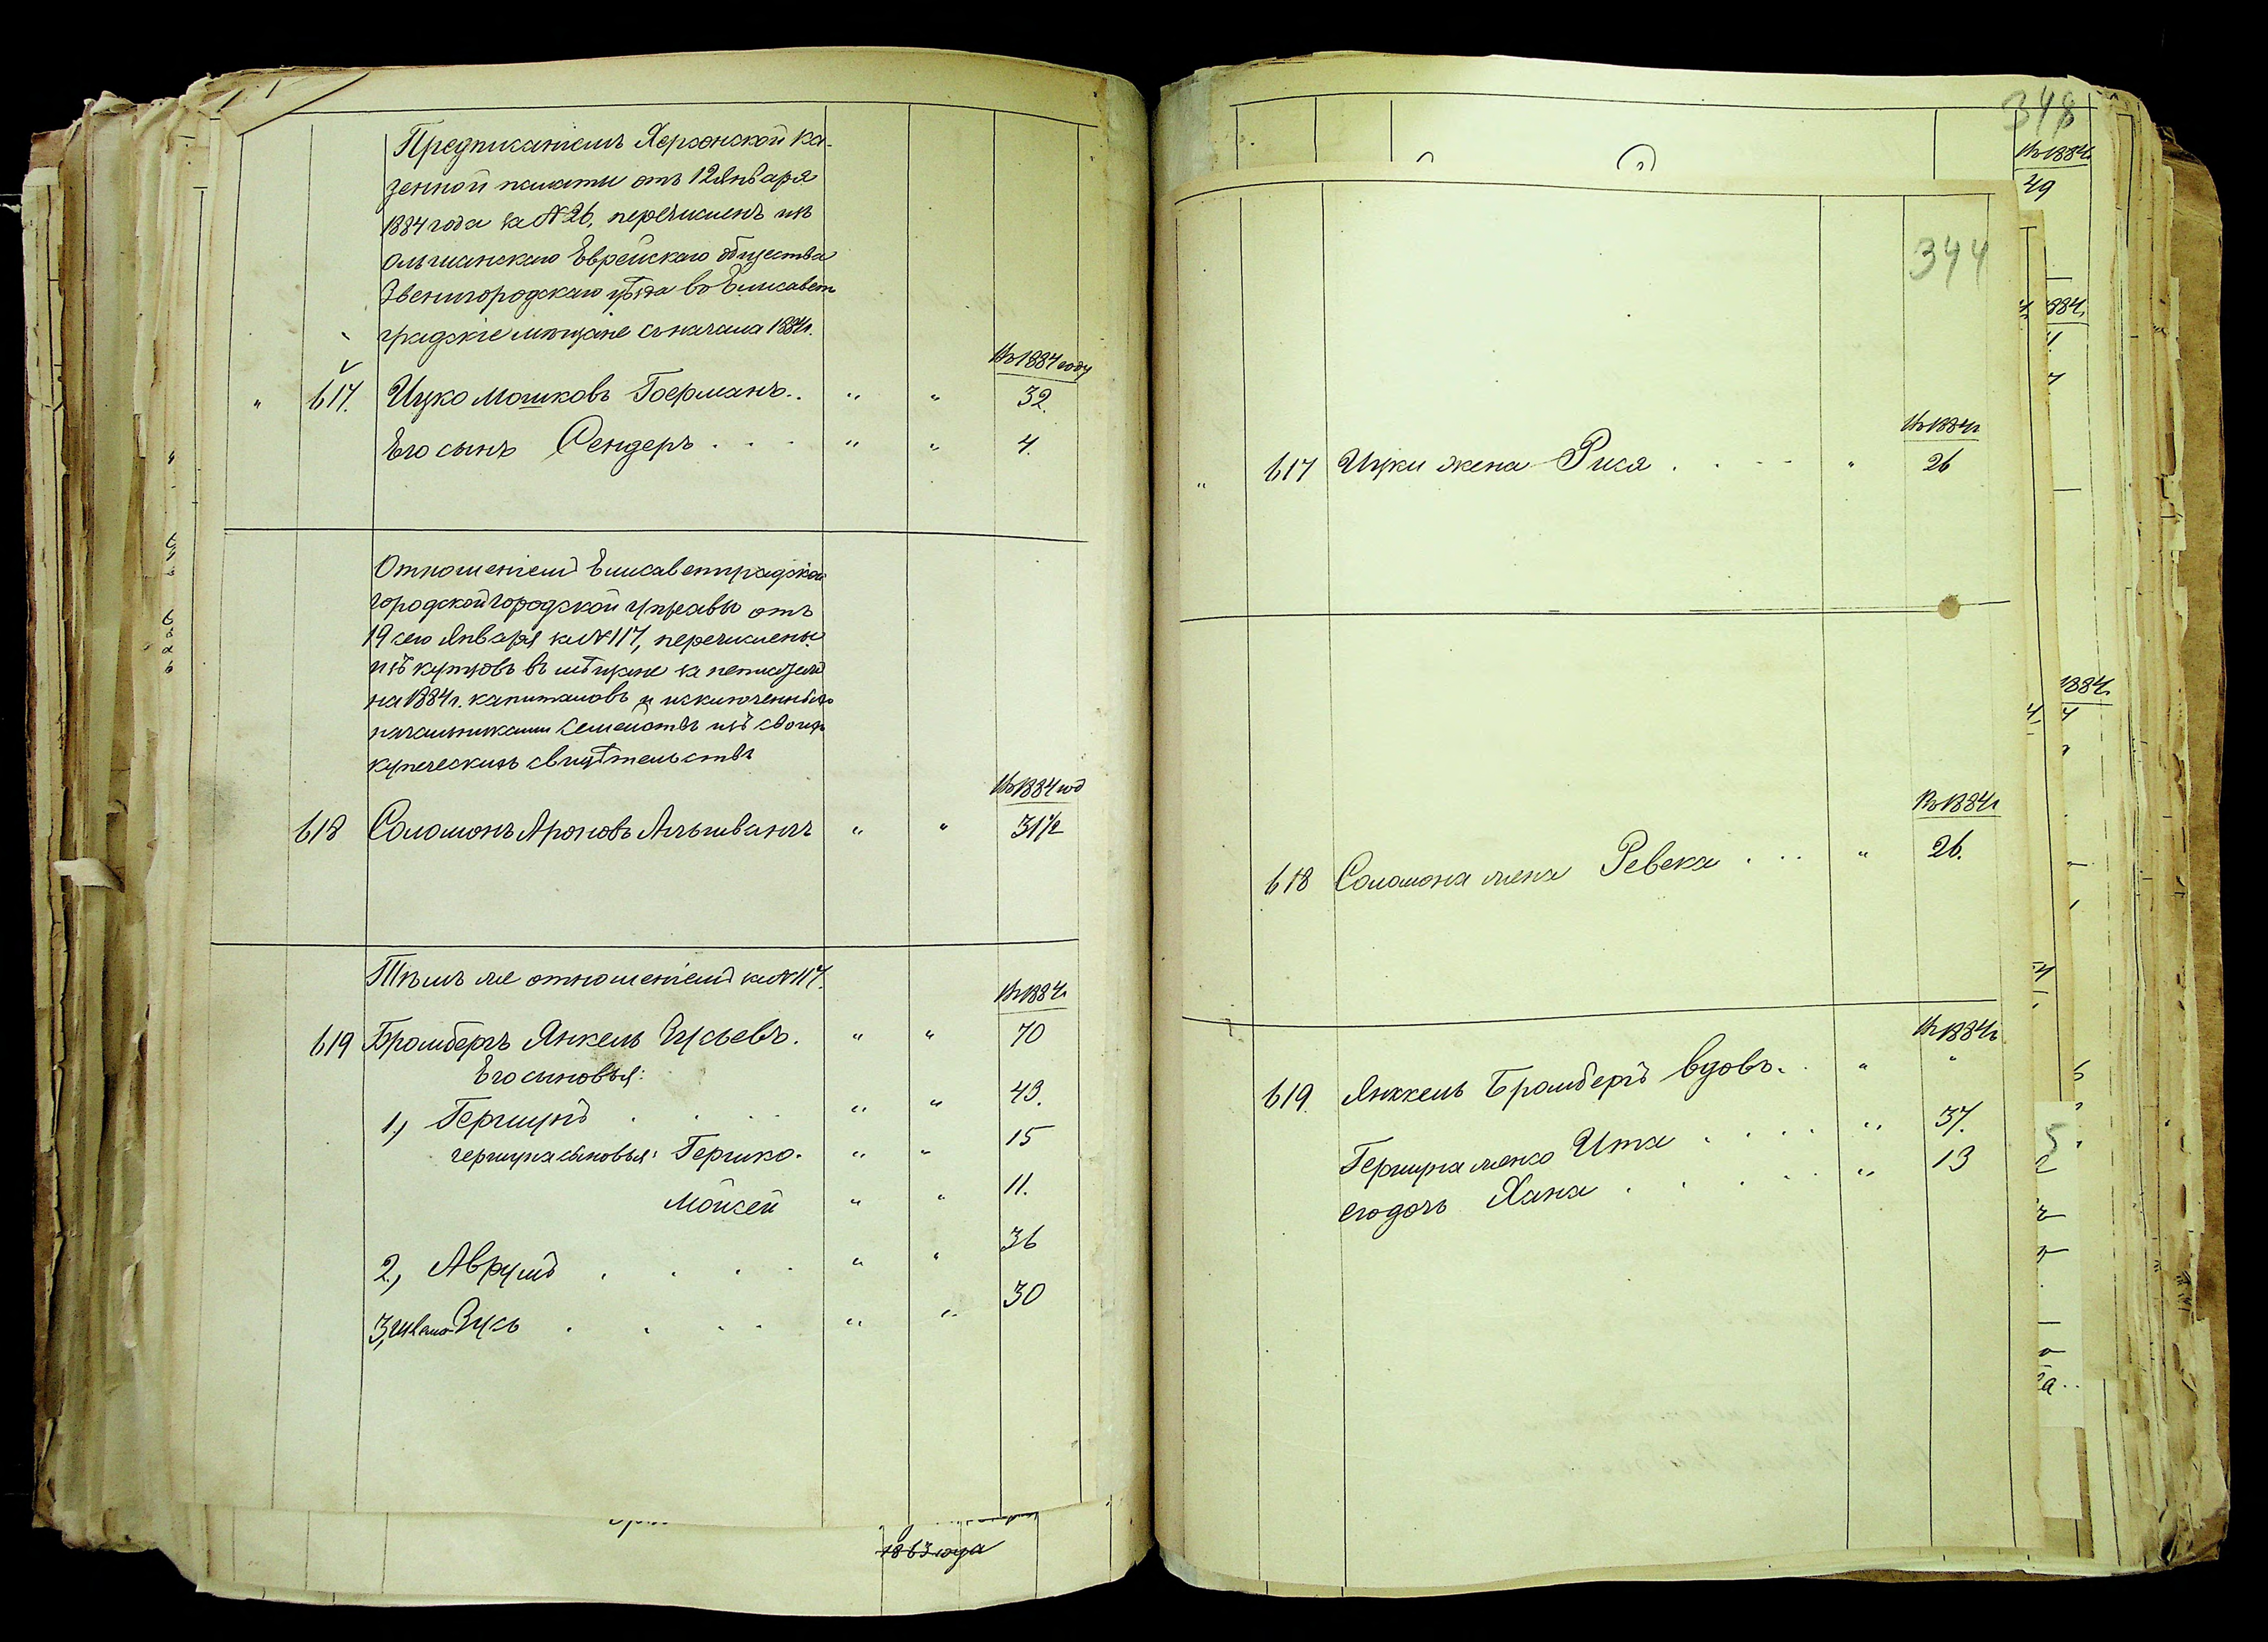 Предписанiемъ Херсонской Ка-
зенной палаты отъ 12 Января
1884 года за № 26, перечисленъ изъ
Ольшанскаго Еврейскаго общества
Звенигородскаго уѣзда во Елисавет
градскiе мѣщане съ начала 1884 г.
Въ 1884 году
" 617. Ицко Мошковъ Гоерманъ.. " " 32.
Его сынъ Сендеръ . . . " " 4.
Отношенiемъ Елисаветградской
городской городской управы отъ
19 сего Января за № 117, перечислены
изъ купцовъ въ мѣщане за
на 1884 г. капиталовъ и исключенные
начальниками семействъ изъ своихъ
купеческихъ свидѣтельствъ
Въ 1884 год
618 Соломонъ Ароновъ " " 31 1/2
Тѣмъ же отношенiемъ за № 117.
Въ 1884 г.
619 Бромбергъ Янкель Зусьевъ. " " 70
Его сыновья:
1, Гершунъ . . . . " " 43.
Гершуна сыновья: Гершко. " " 15
Мойсей " " 11.
2, Аврумъ . . . . " " 36
3, Зусь . . . . " " 30
1863 года
348
Въ 1884
49
344
Въ 1884 г
" 617 Ицки жена Рися . . - - " 26
Въ 1884 г
618 Соломона жена Ревека . . . " 26.
Въ 1884 г.
619. Янкель Бромбергъ вдовъ. . " "
Гершуна жена Ита . . . . " 37.
его дочь Хана . . . . . " 13
1884.
1884.
5